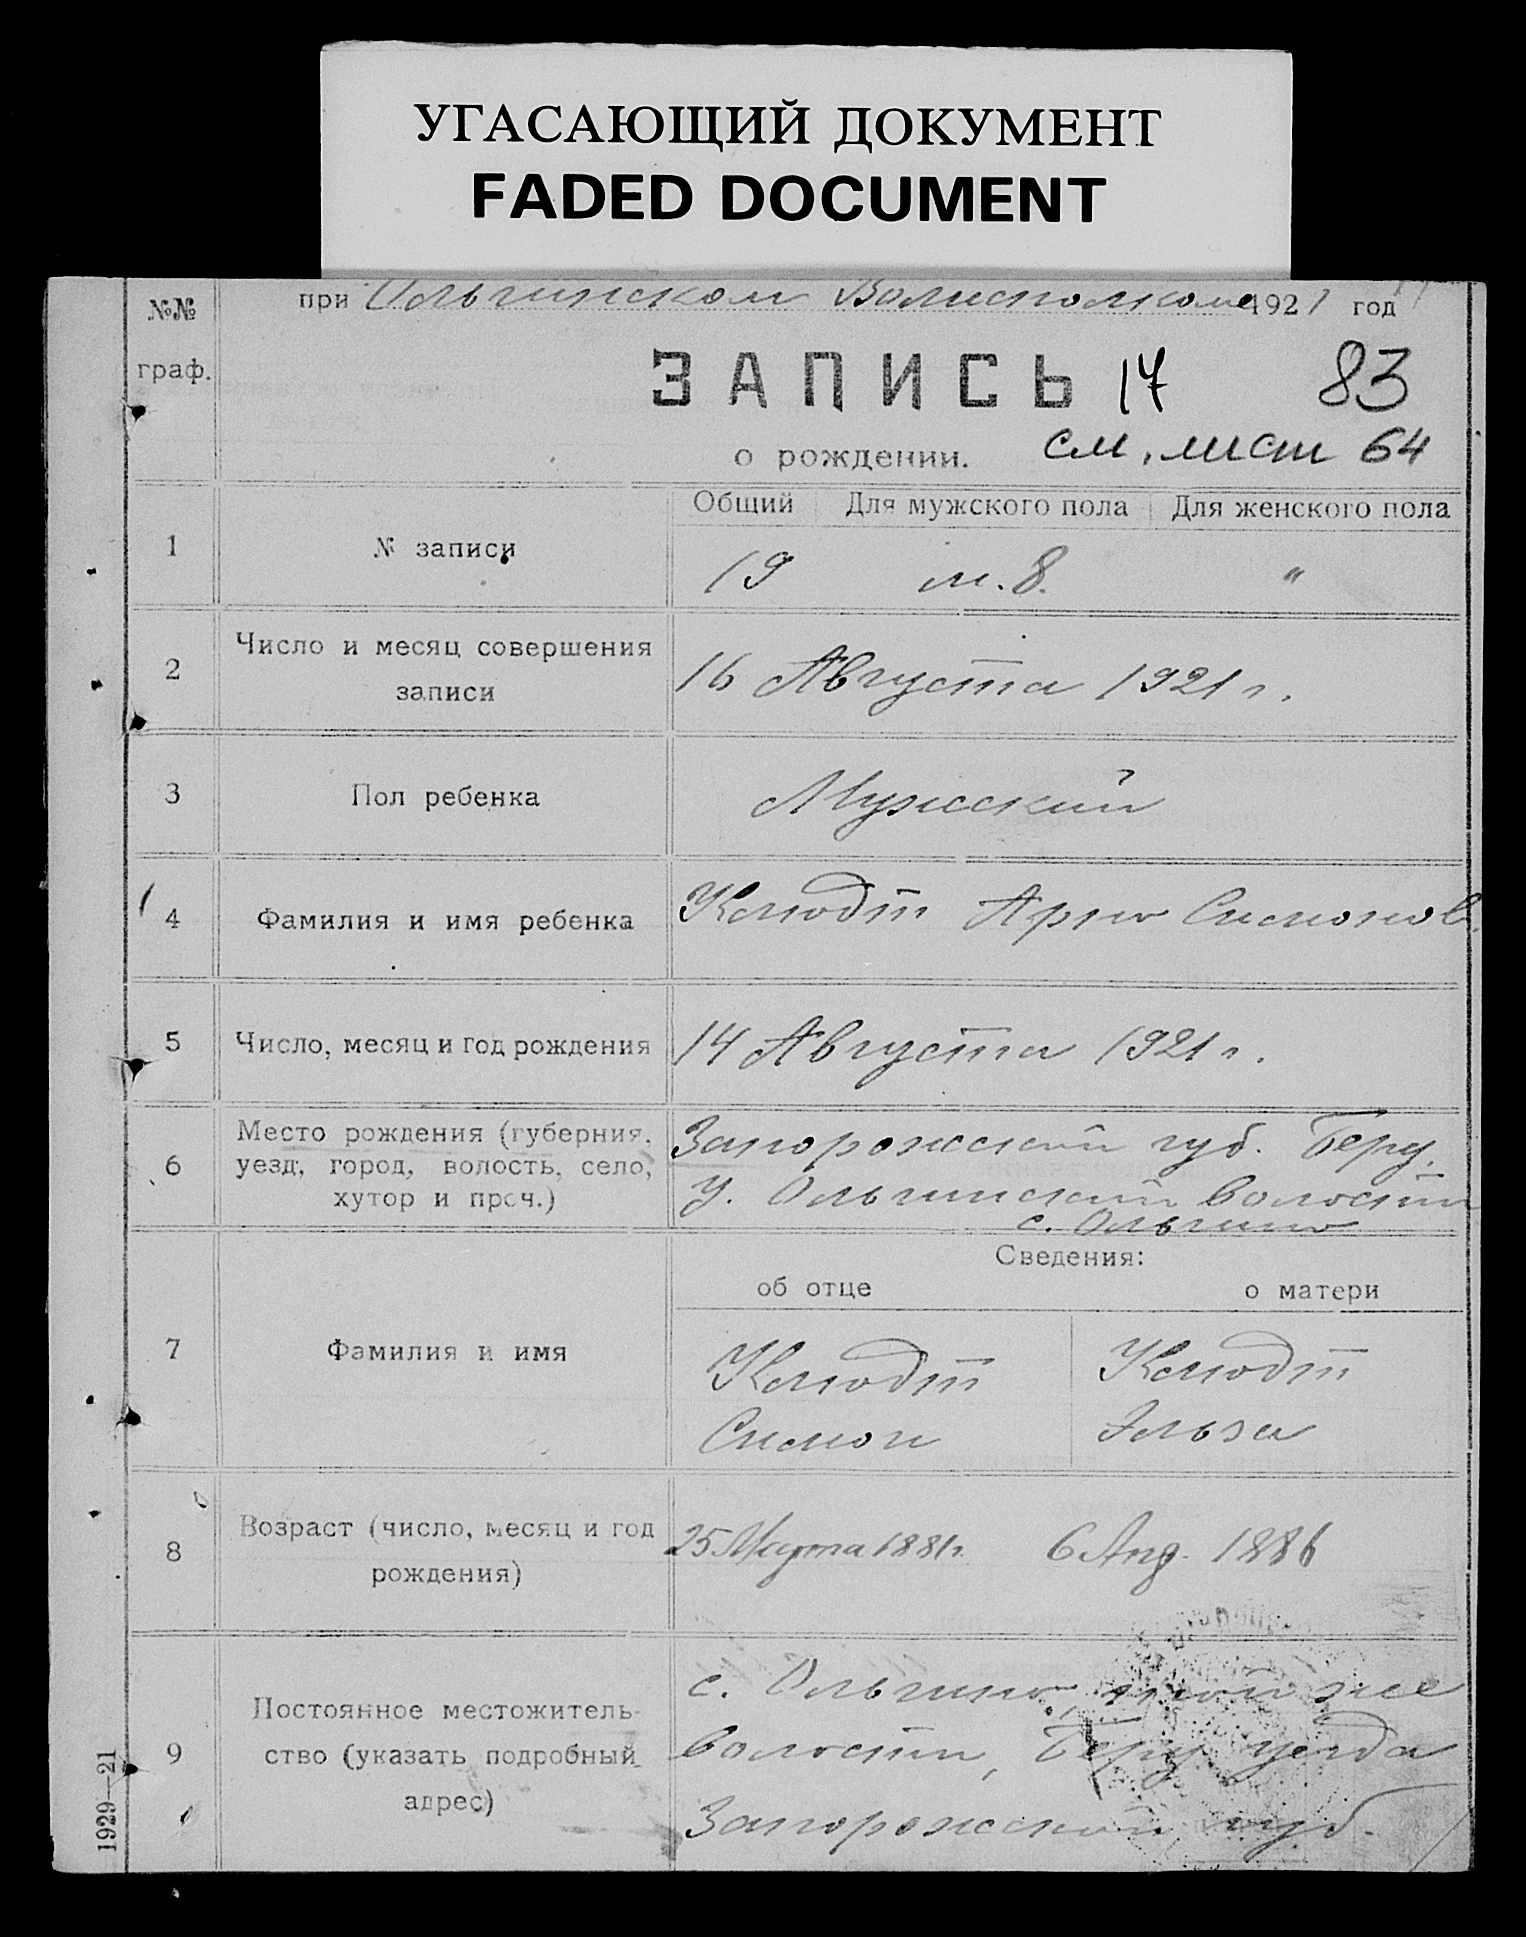 УГАСАЮЩИЙ ДОКУМЕНТ
FADED DOCUMENT
№№ граф.
при Ольгинском Волисполкоме 1921 год
ЗАПИСЬ 17 83
о рождении. см. лист 64
Общий Для мужского пола Для женского пола
1 № записи 19 м. 8. "
2 Число и месяц совершения
записи
16 Августа 1921 г.
3 Пол ребенка Мужской
4 Фамилия и имя ребенка Клюдт Арно Симонов.
5 Число, месяц и год рождения 14 Августа 1921 г.
6 Место рождения (губерния,
уезд, город, волость, село,
хутор и проч.)
Запорожской губ. Берд.
у. Ольгинской волости
с. Ольгино
Сведения:
об отце о матери
7 Фамилия и имя
Клюдт Клюдт
Симон Эльза
8 Возраст (число, месяц и год
рождения)
25 Марта 1881 г. 6 1886
9 Постоянное местожитель-
ство (указать подробный
адрес)
с. Ольгино, той же
волости, уезда
Запорожской губ.
1929—21